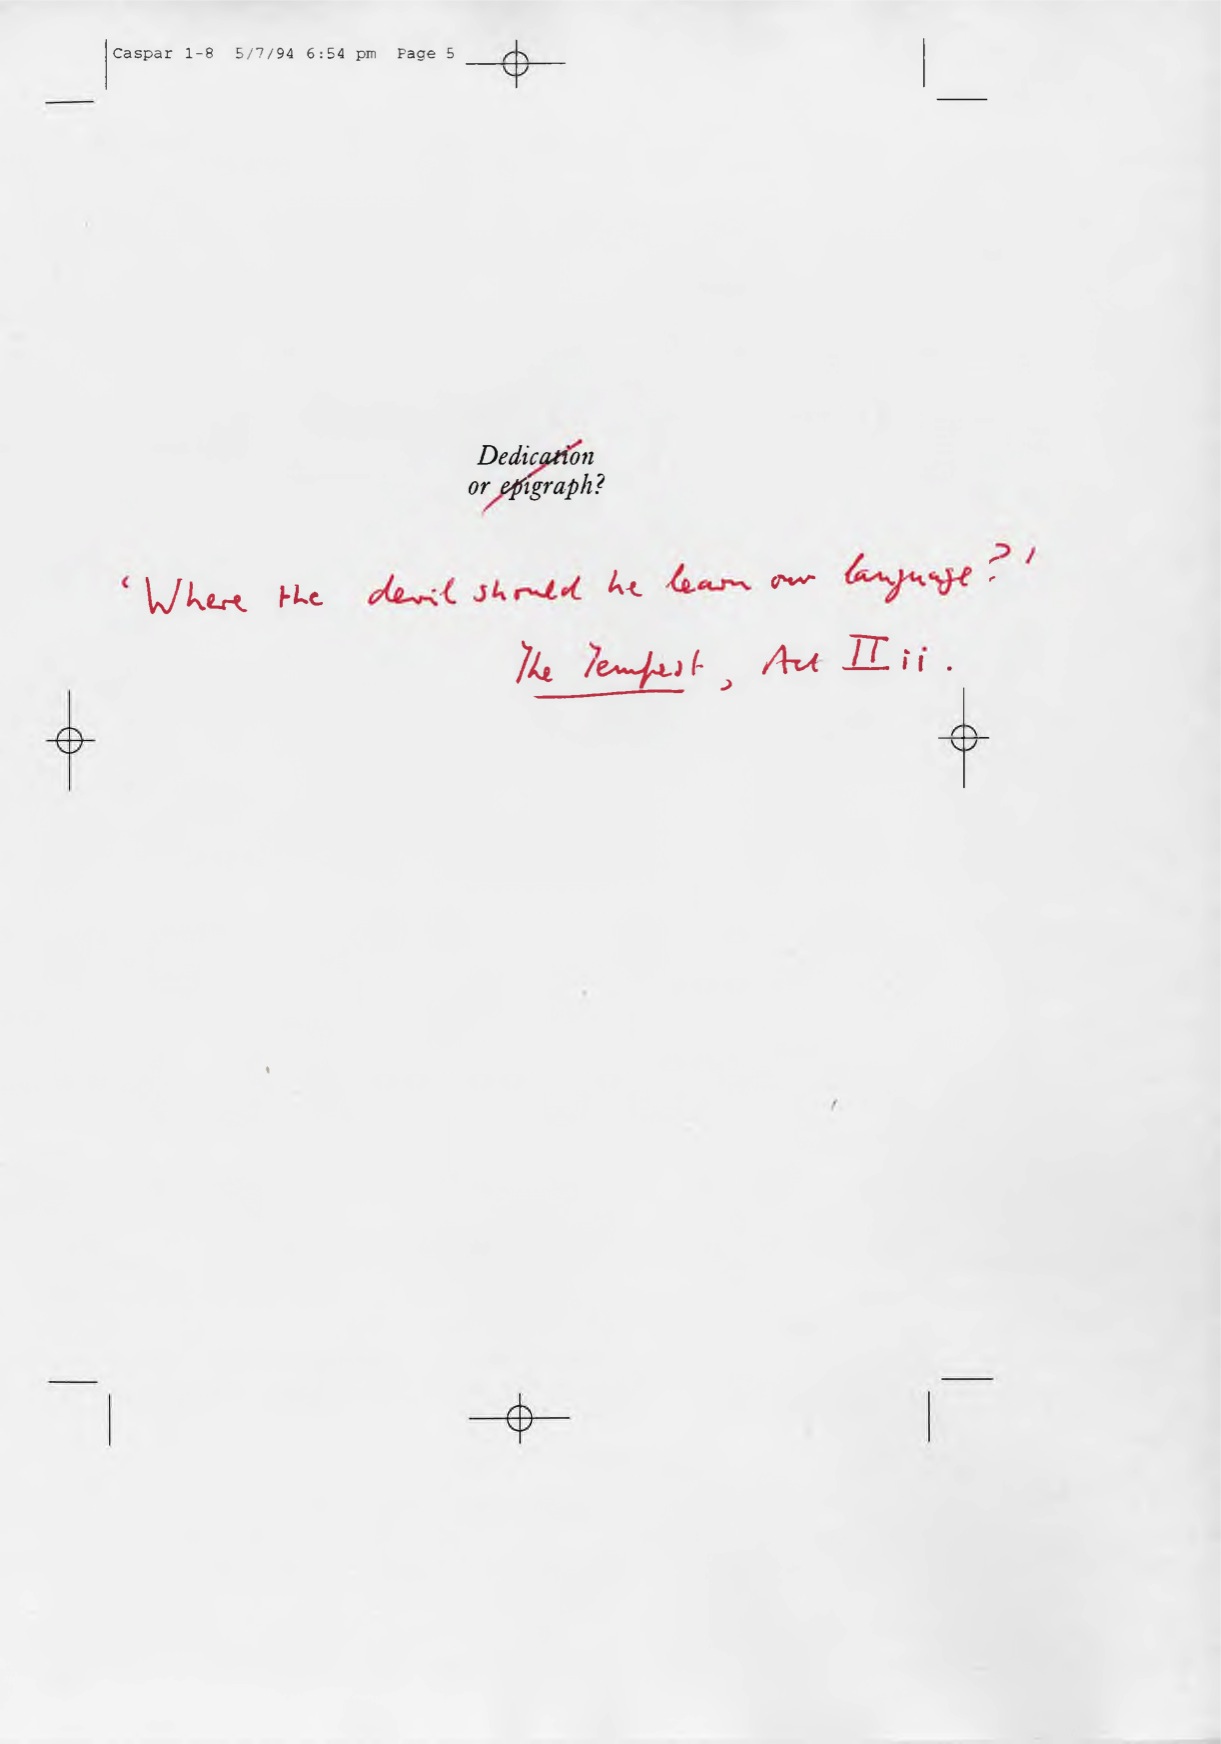 Caspar 1-8 5/7/94 6:54 pm Page 5
Dedication
or epigraph?
'Where the devil should he learn our language?'
The Tempest, Act II ii.